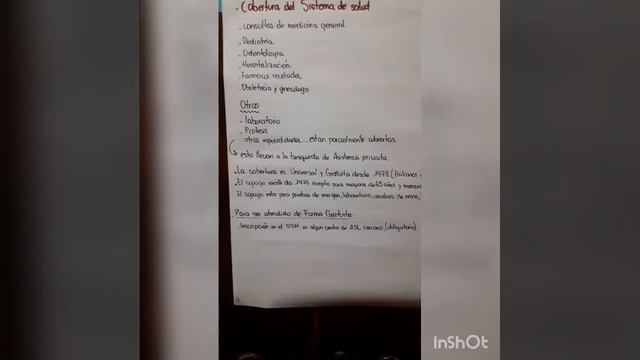 . Cobertura del Sistema de salud
- Consultas de medicina general.
- Pediatría
- Odontología
- Hospitalización
- Farmacos recetados
- Obstetricia y ginecologo
Otras
- laboratorio
- Protesis
otras especialidades... estan parcialmente abiertas.
esto llevan a la busqueda de Asistencia privada.
. La cobertura es Universal y Gratuita desde 1978 (Italianos
. El copago existe de 1993 exepto para mayores de 65 años y menores
El copago esta para pruebas de imagen, laboratorio, analisis de orina,
Para ser atendido de Forma Gratuita
. Inscripción en el SSN en algun centro de ASL cercano (obligatorio).
InShOt